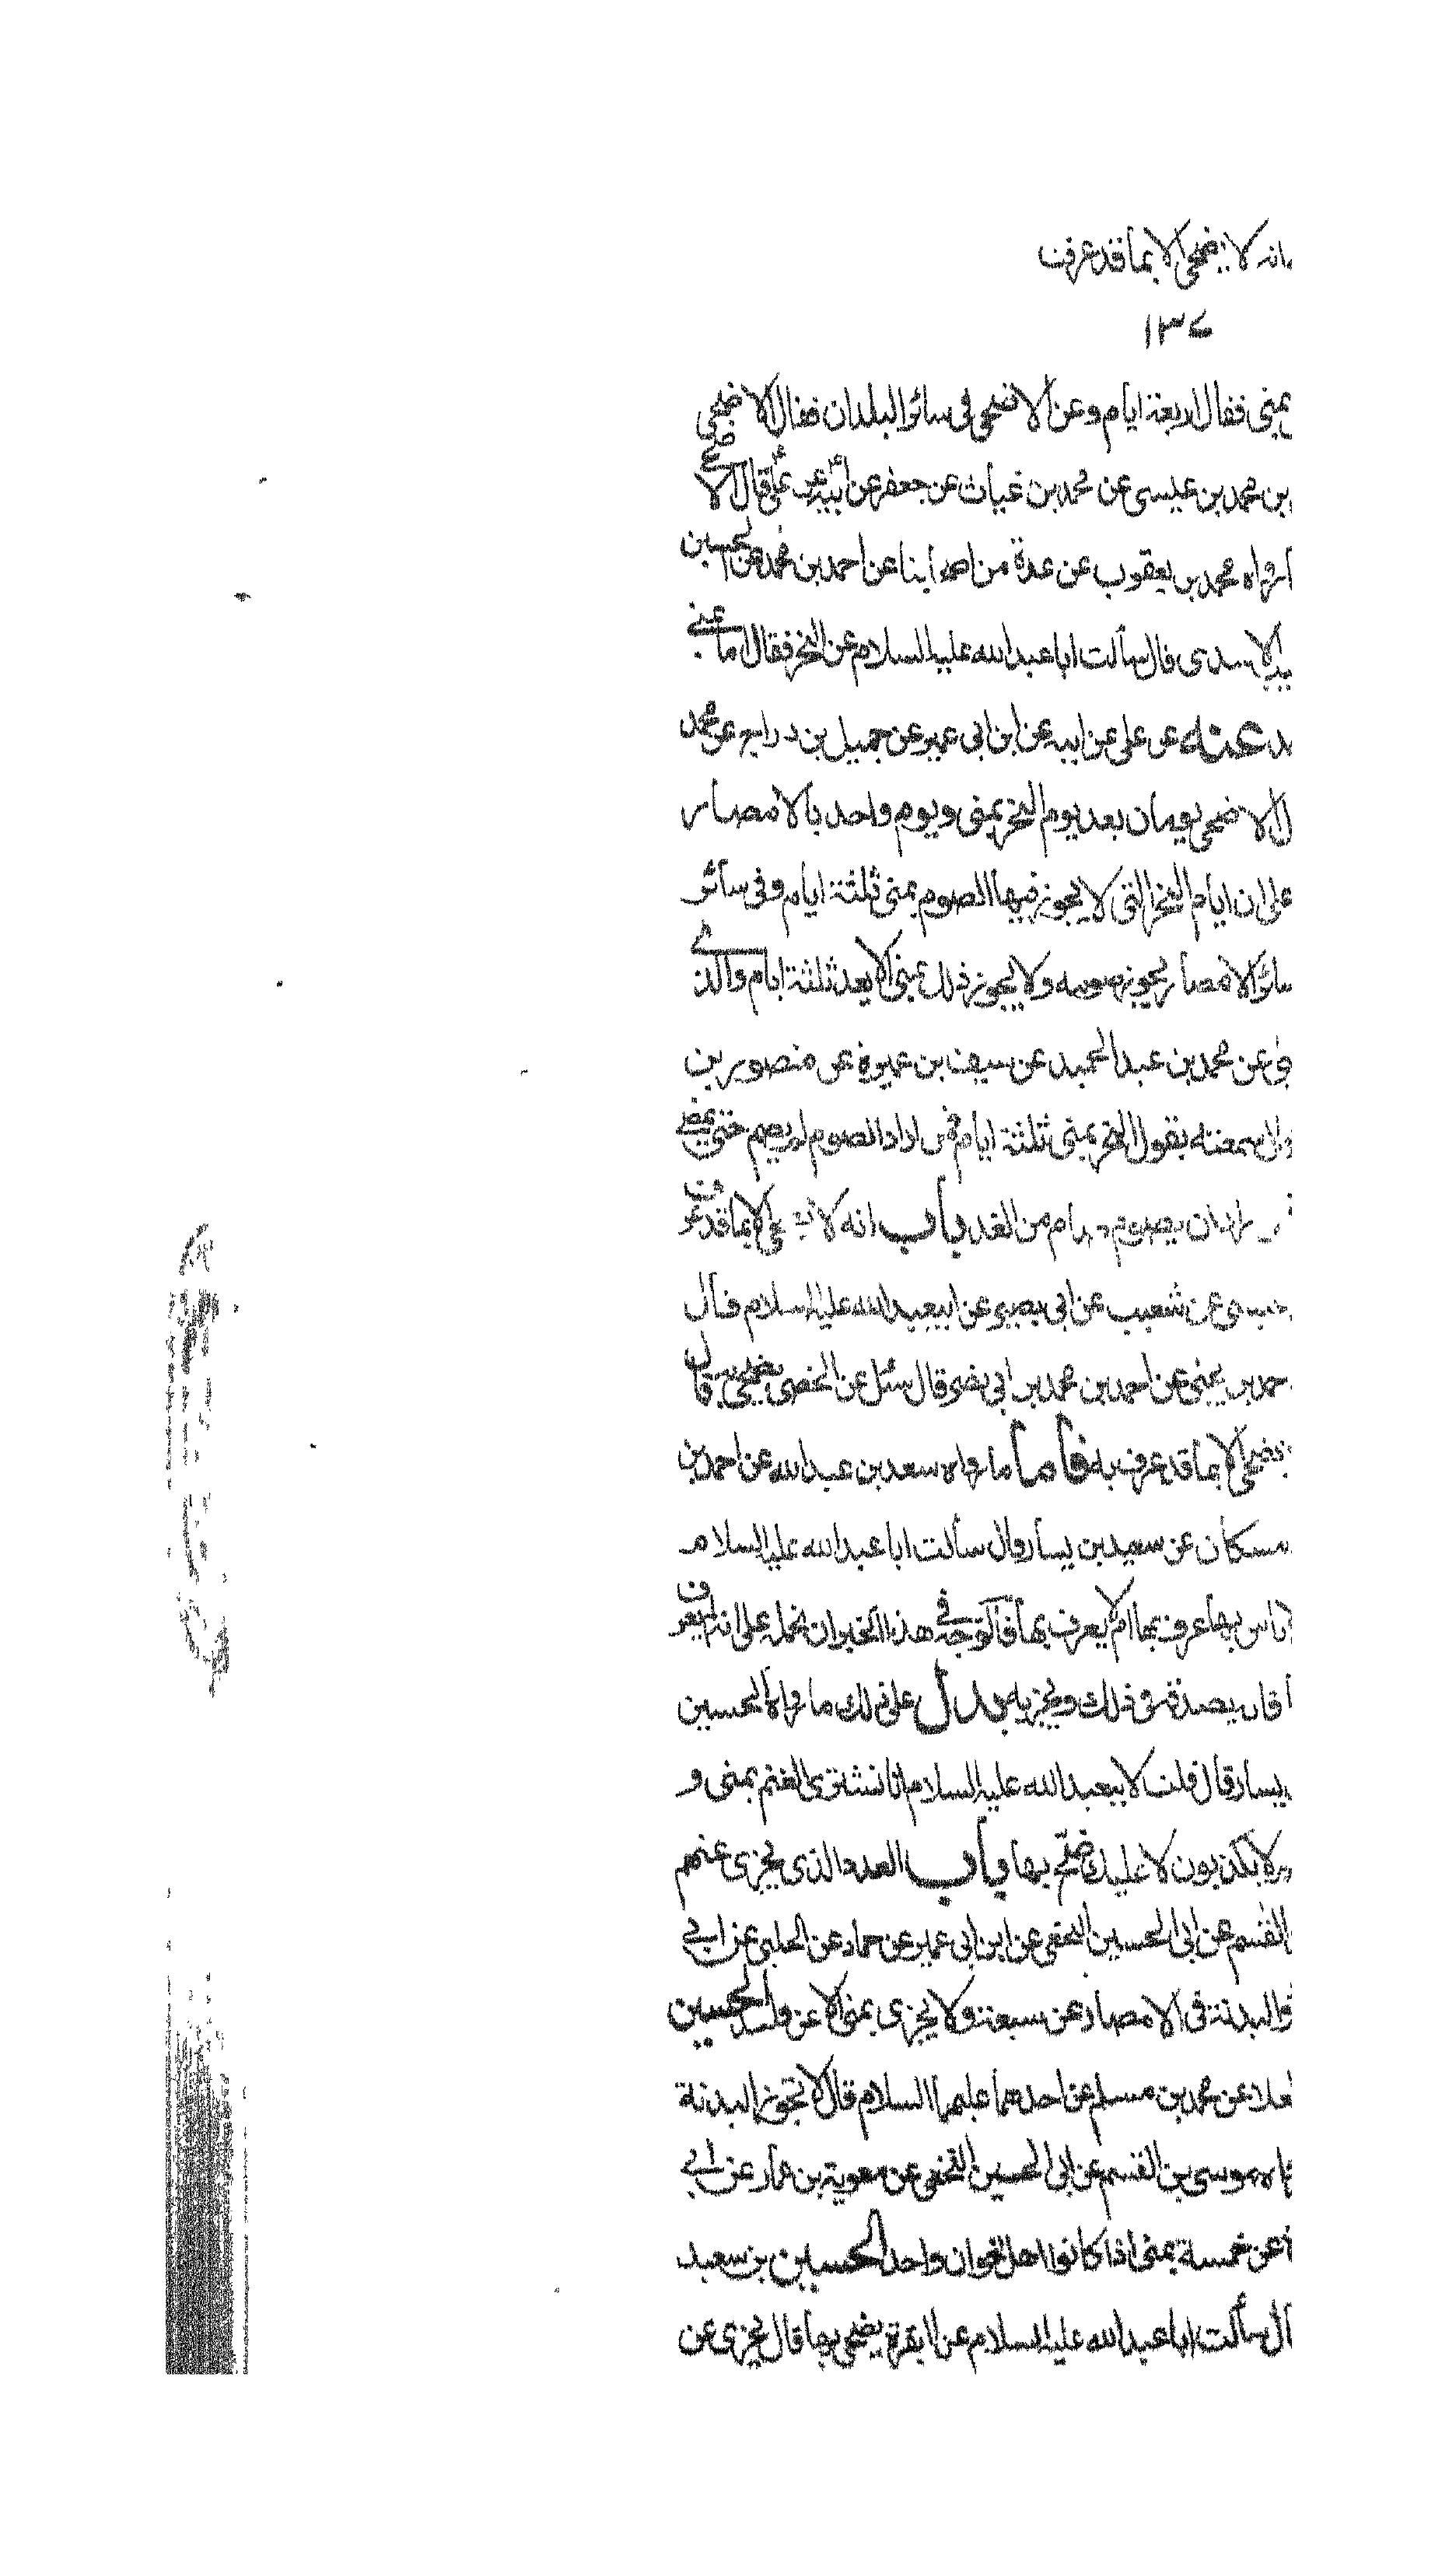 انه لا يضحي الا بما قد عرف
١٣٧
بمنى فقال اربعة ايام وعن الاضحى في سائر البلدان فقال الاضحى
بن محمد بن عيسى عن محمد بن غياث عن جعفر عن ابيه عن علي قال الا
رواه محمد بن يعقوب عن عدة من اصحابنا عن احمد بن محمد عن الحسين
الاسدي قال سألت ابا عبد الله عليه السلام عن النحر فقال اما بمنى
عنه عن علي عن ابيه عن ابن ابي عمير عن جميل بن دراج عن محمد
الاضحى يومان بعد يوم النحر بمنى ويوم واحد بالامصار
على ان ايام النحر التي لا يجوز فيها الصوم بمنى ثلثة ايام وفي سائر
سائر الامصار يجوز صومه ولا يجوز ذلك بمنى الا بعد ثلثة ايام والذي
عن محمد بن عبد الحميد عن سيف بن عميرة عن منصور بن
قال سمعته يقول النحر بمنى ثلثة ايام فمن اراد الصوم لم يصم حتى يمضي
ان يصوم صام من الغد باب انه لا يضحي الا بما قد عرف
عن شعيب عن ابي بصير عن ابي عبد الله عليه السلام قال
احمد بن يحيى عن احمد بن محمد بن ابي نصر قال سئل عن الخصي يضحى به قال
يضحي الا بما قد عرف به فاما ما رواه سعد بن عبد الله عن احمد بن
مسكان عن سعيد بن يسار قال سألت ابا عبد الله عليه السلام
باس بها عرف بها ام لا يعرف بها فالوجه في هذا الخبر ان نحمله على انه لم يعرف
فان يصدق في ذلك ويجزيه يدل على ذلك ما رواه الحسين
يسار قال قلت لابي عبد الله عليه السلام انا نشتري الغنم بمنى و
لا يكذبون لا عليك ضح بها باب العدد الذي يجزي عنهم
القسم عن ابي الحسين النخعي عن ابن ابي عمير عن حماد عن الحلبي عن ابي
والبدنة في الامصار عن سبعة ولا يجزي بمنى الا عن واحد الحسين
العلا عن محمد بن مسلم عن احدهما عليهما السلام قال لا تجوز البدنة
رواه موسى بن القسم عن ابي الحسين النخعي عن معوية بن عمار عن ابي
عن خمسة بمنى اذا كانوا اهل خوان واحد الحسين بن سعيد
قال سألت ابا عبد الله عليه السلام عن البقرة يضحى بها قال يجزي عن